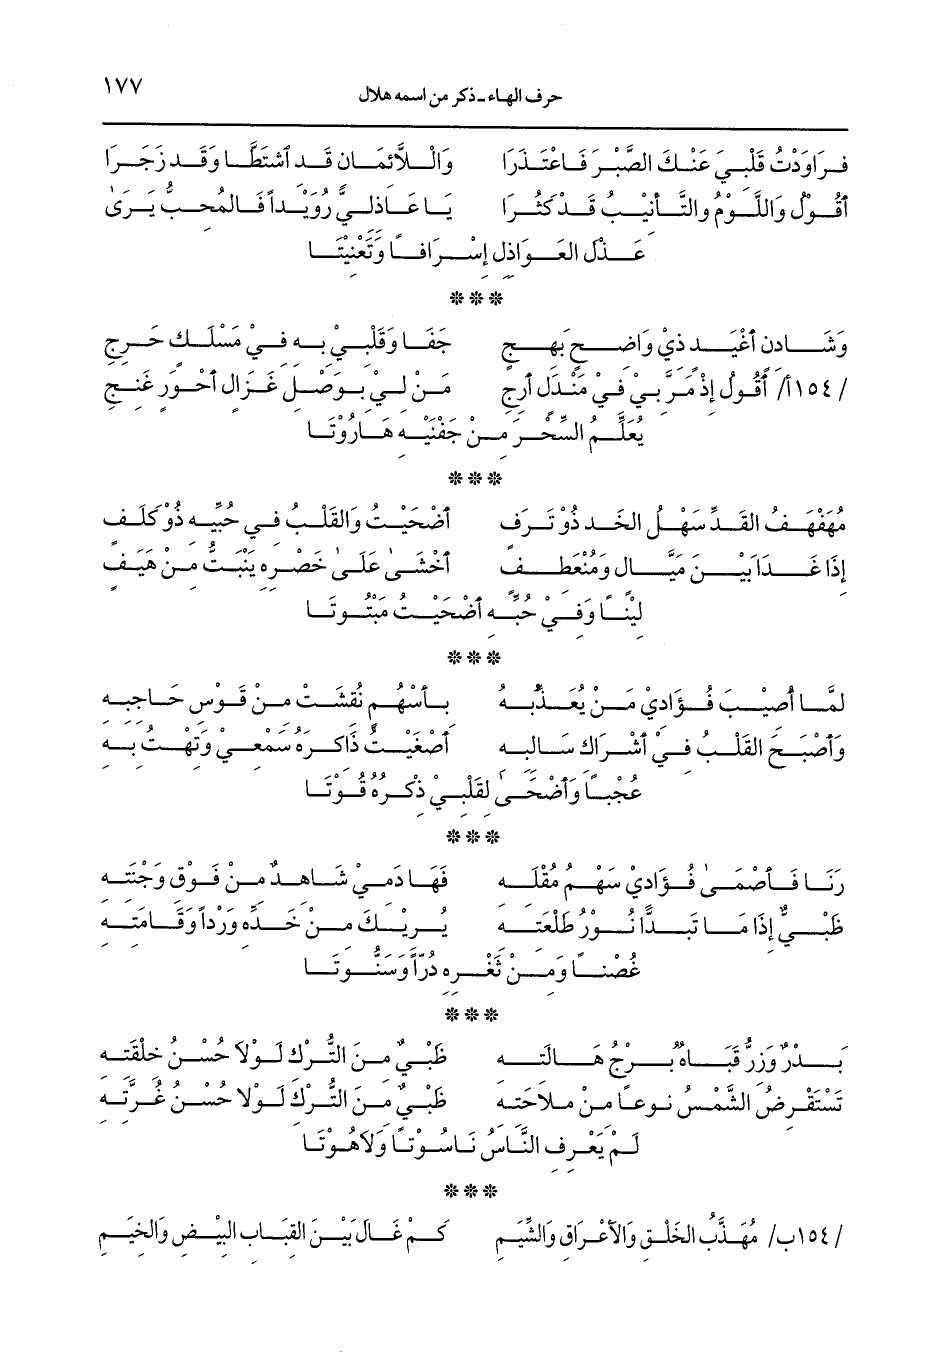 حرف الهاء ـ ذكر من اسمه هلال ١٧٧
فَرَاوَدْتُ قَلْبِيَ عَنْكَ الصَّبْرَ فَاعْتَذَرَا وَالْلاَّئِمَانِ قَدِ اشْتَطَّا وَقَدْ زَجَرَا
أَقُوْلُ وَاللَّوْمُ وَالتَّأْنِيْبُ قَدْ كَثُرَا يَا عَاذِلَيَّ رُوَيْداً فَالْمُحِبُّ يَرَىٰ
عَذْلَ العَوَاذِلِ إِسْرَافاً وَتَعْنِيْتَا
***
وَشَادِنٍ أَغْيَدٍ ذِيْ وَاضِحٍ بَهِجِ جَفَا وَقَلْبِيْ بِهِ فِيْ مَسْلَكٍ حَرِجِ
/١٥٤أ/ أَقُوْلُ إِذْ مَرَّ بِيْ فِيْ مَنْدَلٍ أَرِجِ مَنْ لِيْ بِوَصْلِ غَزَالٍ أَحْوَرٍ غَنِجِ
يُعَلِّمُ السِّحْرَ مِنْ جَفْنَيْهِ هَارُوْتَا
***
مُهَفْهَفُ القَدِّ سَهْلُ الخَدِّ ذُوْ تَرَفِ أَضْحَيْتُ وَالقَلْبُ فِي حُبِّيْهِ ذُوْ كَلَفِ
إِذَا غَدَا بَيْنَ مَيَّالٍ وَمُنْعَطِفِ أَخْشَىٰ عَلَىٰ خَصْرِهِ يَنْبَتُّ مِنْ هَيَفِ
لِيْناً وَفِيْ حُبِّهِ أَضْحَيْتُ مَبْتُوْتَا
***
لَمَّا أُصِيْبَ فُؤَادِيْ مَنْ يُعَذِّبُهُ بِأَسْهُمٍ نُقِشَتْ مِنْ قَوْسِ حَاجِبِهِ
وَأَصْبَحَ القَلْبُ فِيْ أَشْرَاكِ سَالِبِهِ أَصْغَيْتُ ذَاكِرَهُ سَمْعِي وَتِهْتُ بِهِ
عُجْباً وَأَضْحَىٰ لِقَلْبِيْ ذِكْرُهُ قُوْتَا
***
رَنَا فَأَصْمَىٰ فُؤَادِيْ سَهْمُ مُقْلَتِهِ فَهَا دَمِيْ شَاهِدٌ مِنْ فَوْقِ وَجْنَتِهِ
ظَبْيٌ إِذَا مَا تَبَدَّا نُوْرُ طَلْعَتِهِ يُرِيْكَ مِنْ خَدِّهِ وَرْداً وَقَامَتِهِ
غُصْناً وَمِنْ ثَغْرِهِ دُرّاً وَمَنُوْتَا
***
بَدْرٌ وَزُرَّ قَبَاهُ بُرْجُ هَالَتِهِ ظَبْيٌ مِنَ التُّرْكِ لَوْلاَ حُسْنُ خِلْقَتِهِ
تَسْتَقْرِضُ الشَّمْسُ نَوْعاً مِنْ مَلاَحَتِهِ ظَبْيٌ مِنَ التُّرْكِ لَوْلاَ حُسْنُ غُرَّتِهِ
لَمْ يَعْرِفِ النَّاسُ نَاسُوْتاً وَلاَهُوْتَا
***
/١٥٤ب/ مُهَذَّبُ الخَلْقِ وَالأَعْرَاقِ وَالشِّيَمِ كَمْ غَالَ بَيْنَ القِبَابِ البِيْضِ وَالخِيَمِ